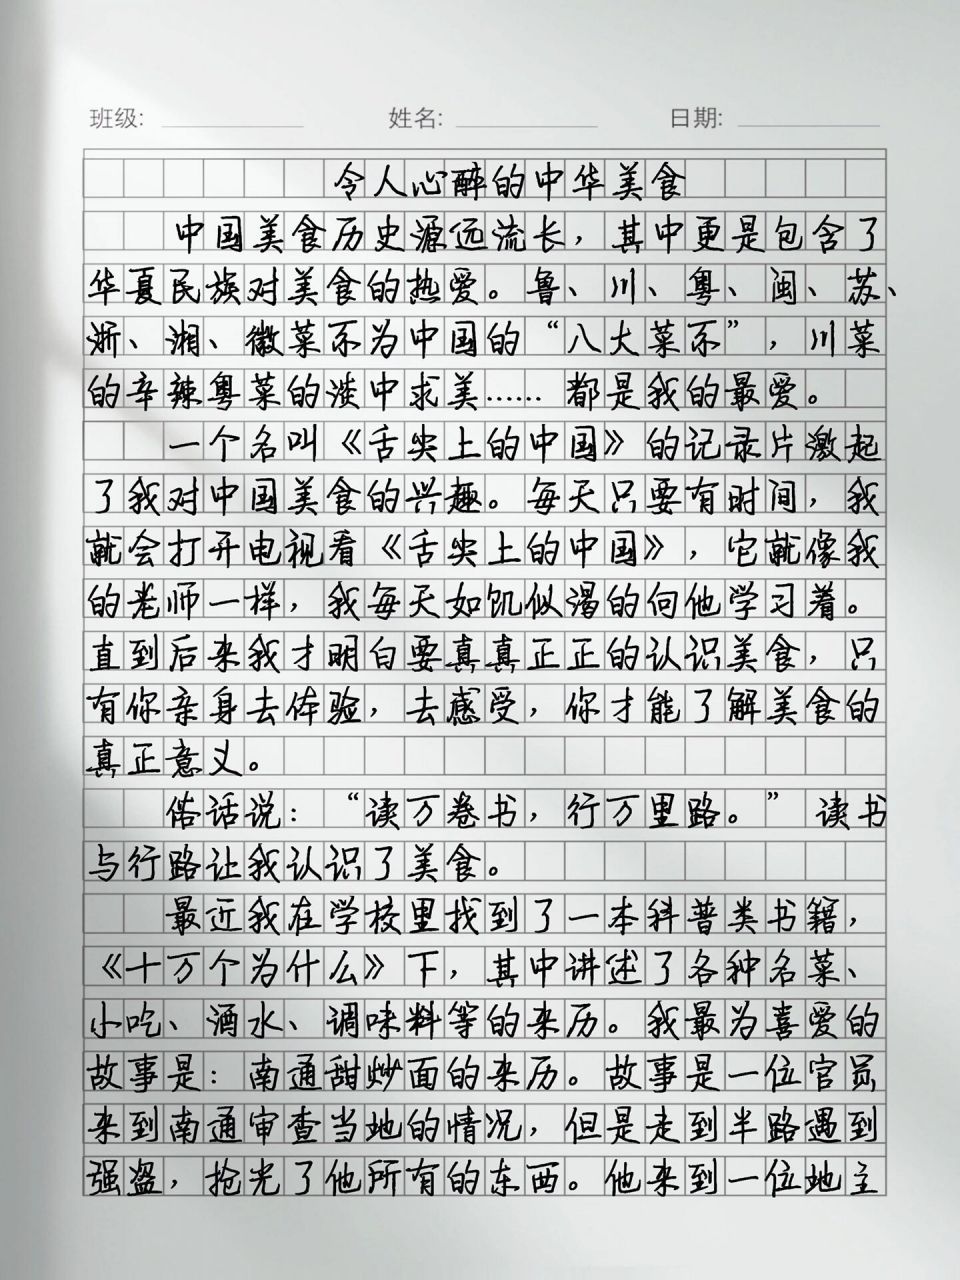 班级: 姓名: 日期:
令人心醉的中华美食
中国美食历史源远流长，其中更是包含了
华夏民族对美食的热爱。鲁、川、粤、闽、苏、
浙、湘、徽菜系为中国的“八大菜系”，川菜
的辛辣粤菜的淡中求美……都是我的最爱。
一个名叫《舌尖上的中国》的记录片激起
了我对中国美食的兴趣。每天只要有时间，我
就会打开电视看《舌尖上的中国》，它就像我
的老师一样，我每天如饥似渴的向他学习着。
直到后来我才明白要真真正正的认识美食，只
有你亲身去体验，去感受，你才能了解美食的
真正意义。
俗话说：“读万卷书，行万里路。”读书
与行路让我认识了美食。
最近我在学校里找到了一本科普类书籍，
《十万个为什么》下，其中讲述了各种名菜、
小吃、酒水、调味料等的来历。我最为喜爱的
故事是：南通甜炒面的来历。故事是一位官员
来到南通审查当地的情况，但是走到半路遇到
强盗，抢光了他所有的东西。他来到一位地主